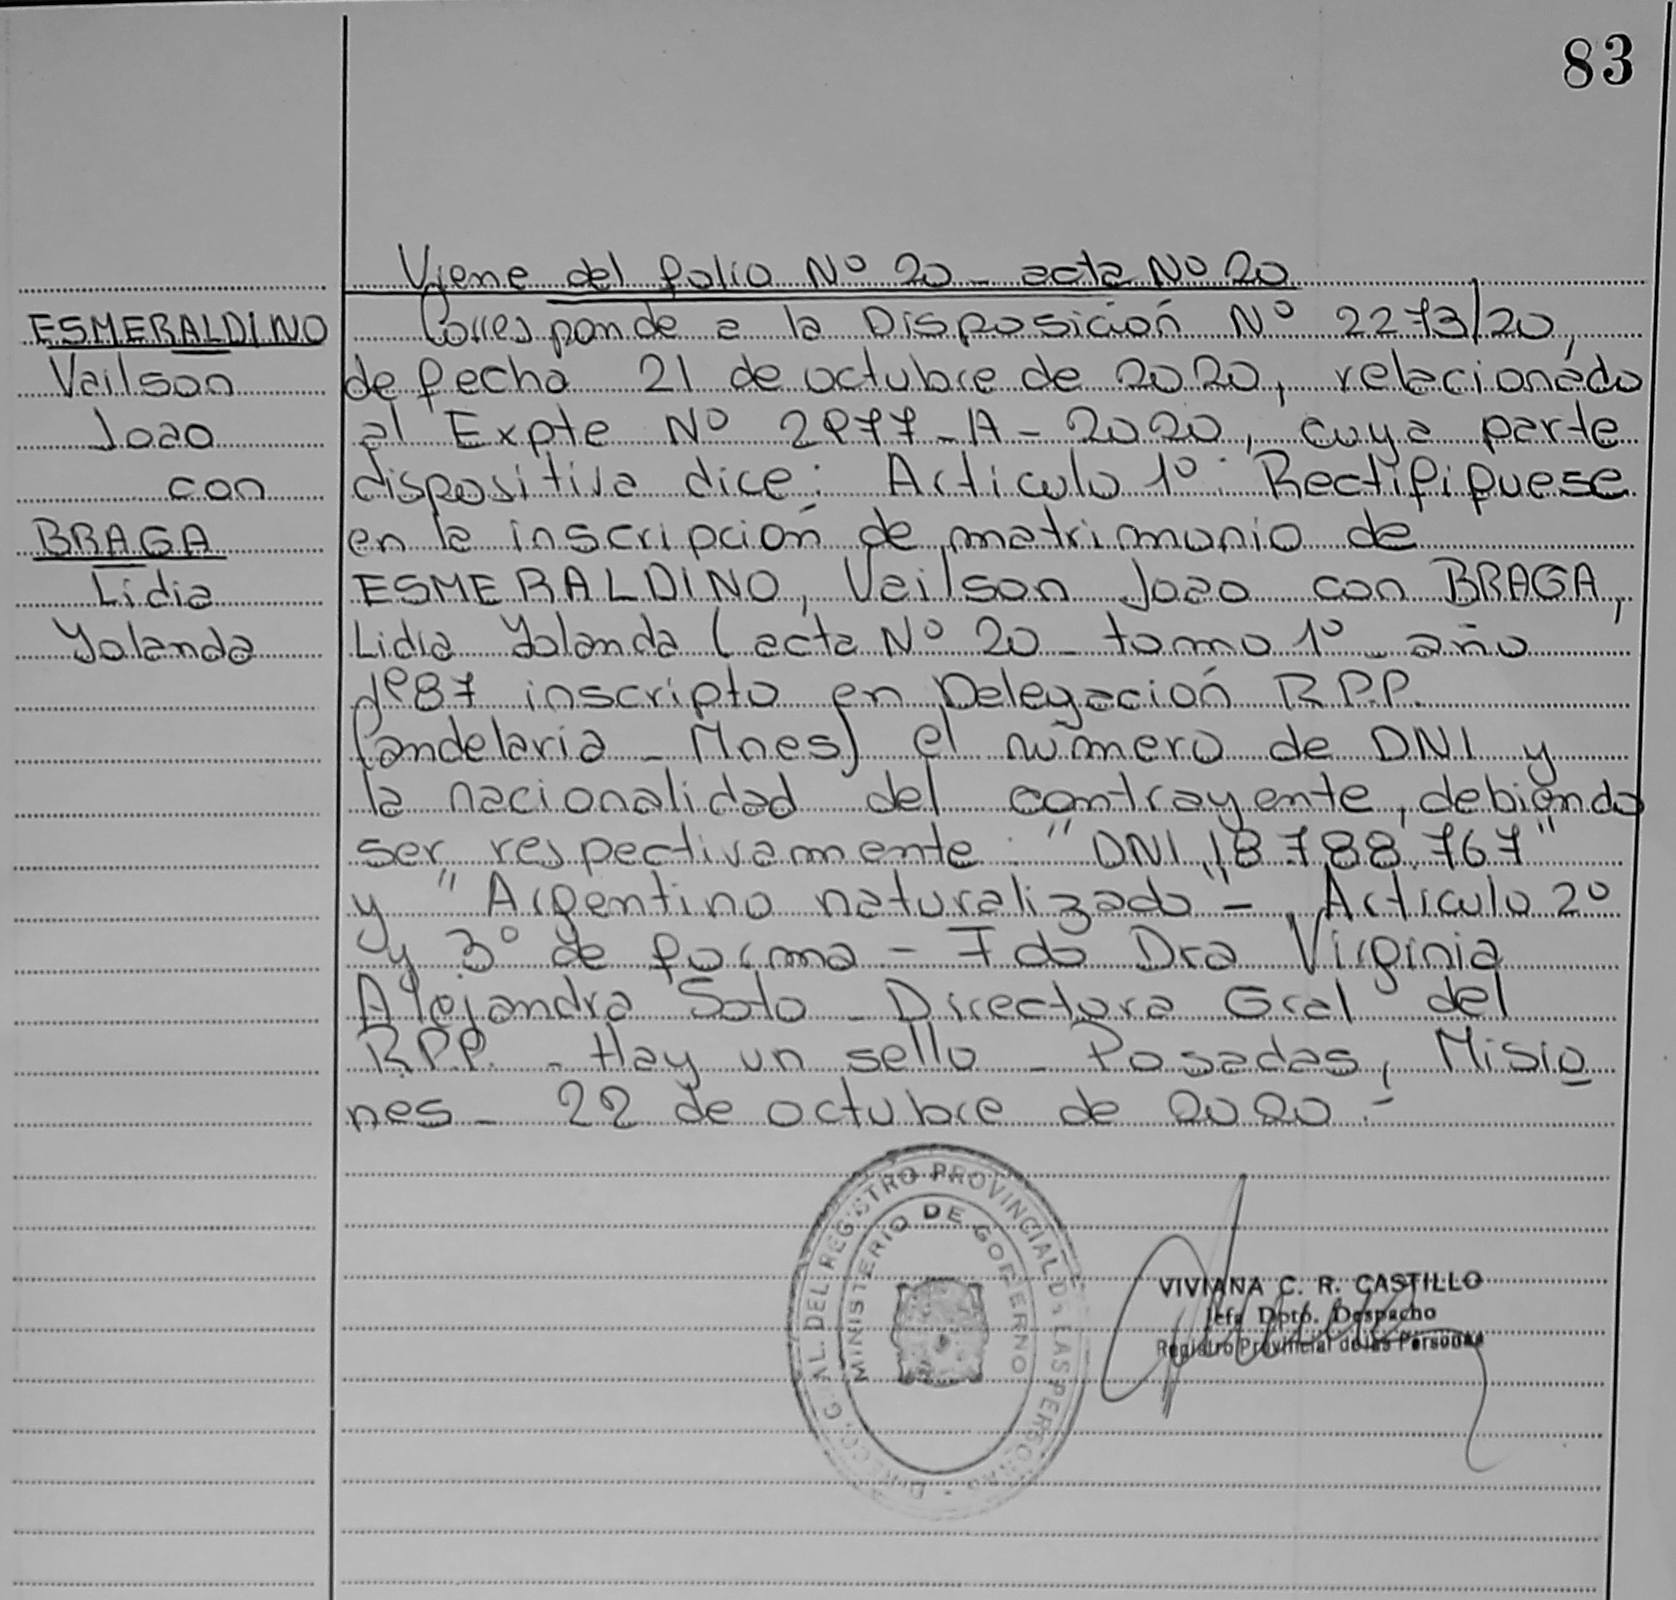 83
Viene del folio Nº 20 - acta Nº 20
ESMERALDINO
Vailson
Joao
con
BRAGA
Lidia
Yolanda
Corresponde a la Disposición Nº 2273/20,
de fecha 21 de octubre de 2020, relacionado
al Expte Nº 2977-A-2020, cuya parte
dispositiva dice: Articulo 1º: Rectifiquese
en la inscripción de matrimonio de
ESMERALDINO, Vailson Joao con BRAGA,
Lidia Yolanda (acta Nº 20 - tomo 1º - año
1987 inscripto en Delegación R.P.P.
Candelaria - Mnes) el número de DNI y
la nacionalidad del contrayente, debiendo
ser respectivamente: "DNI 18.788.767"
y "Argentino naturalizado" - Articulo 2º
y 3º de forma - Fdo Dra Virginia
Alejandra Soto - Directora Gral del
R.P.P. - Hay un sello - Posadas, Misio
nes - 22 de octubre de 2020.-
DIRECC. GRAL. DEL REGISTRO PROVINCIAL DE LAS PERSONAS
MINISTERIO DE GOBIERNO
VIVIANA C. R. CASTILLO
Jefa Dpto. Despacho
Registro Provincial de las Personas